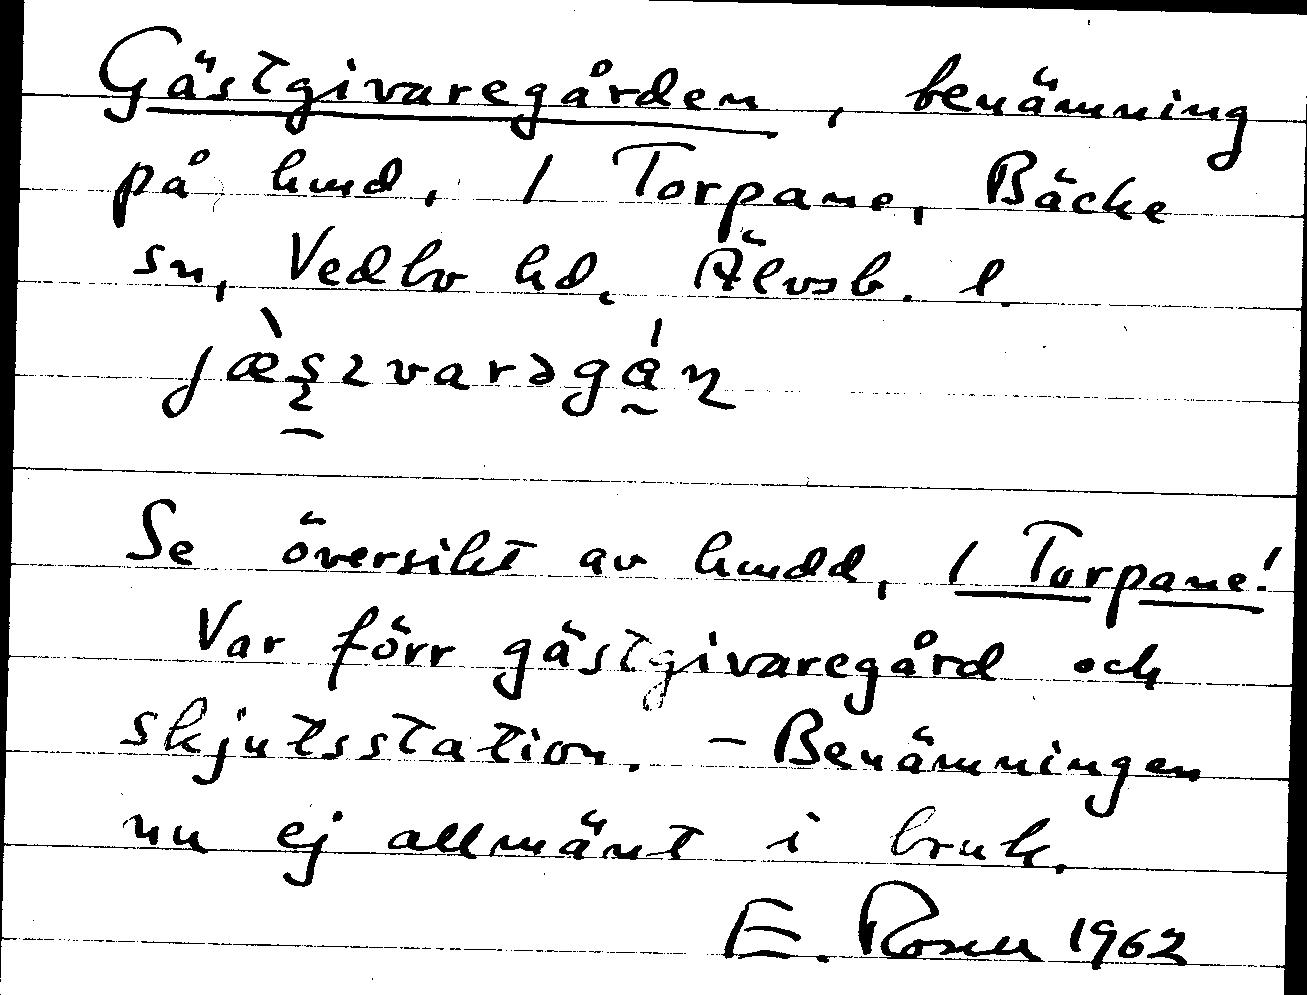 Gästgivaregården, benämning
på hmd, 1 Torpane, Bäcke
sn, Vedbo hd, Älvsb. l.
Se översikt av hmdd, 1 Torpane!
Var förr gästgivaregård och
skjutsstation. – Benämningen
nu ej allmänt i bruk.
E. Rosell 1962